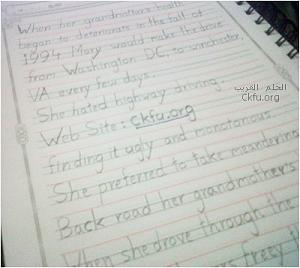 When her grandmother's health
began to deteriorate in the fall of
1994 Mary would make the drive
from Washington DC, to winchester,
VA every few days.
She hated highway driving.
Web Site : Ckfu.org
finding it ugly and monotonous
She preferred to take meandering
Back road her grandmother's
When she drove through the
freely the
الحلم الغريب
Ckfu.org